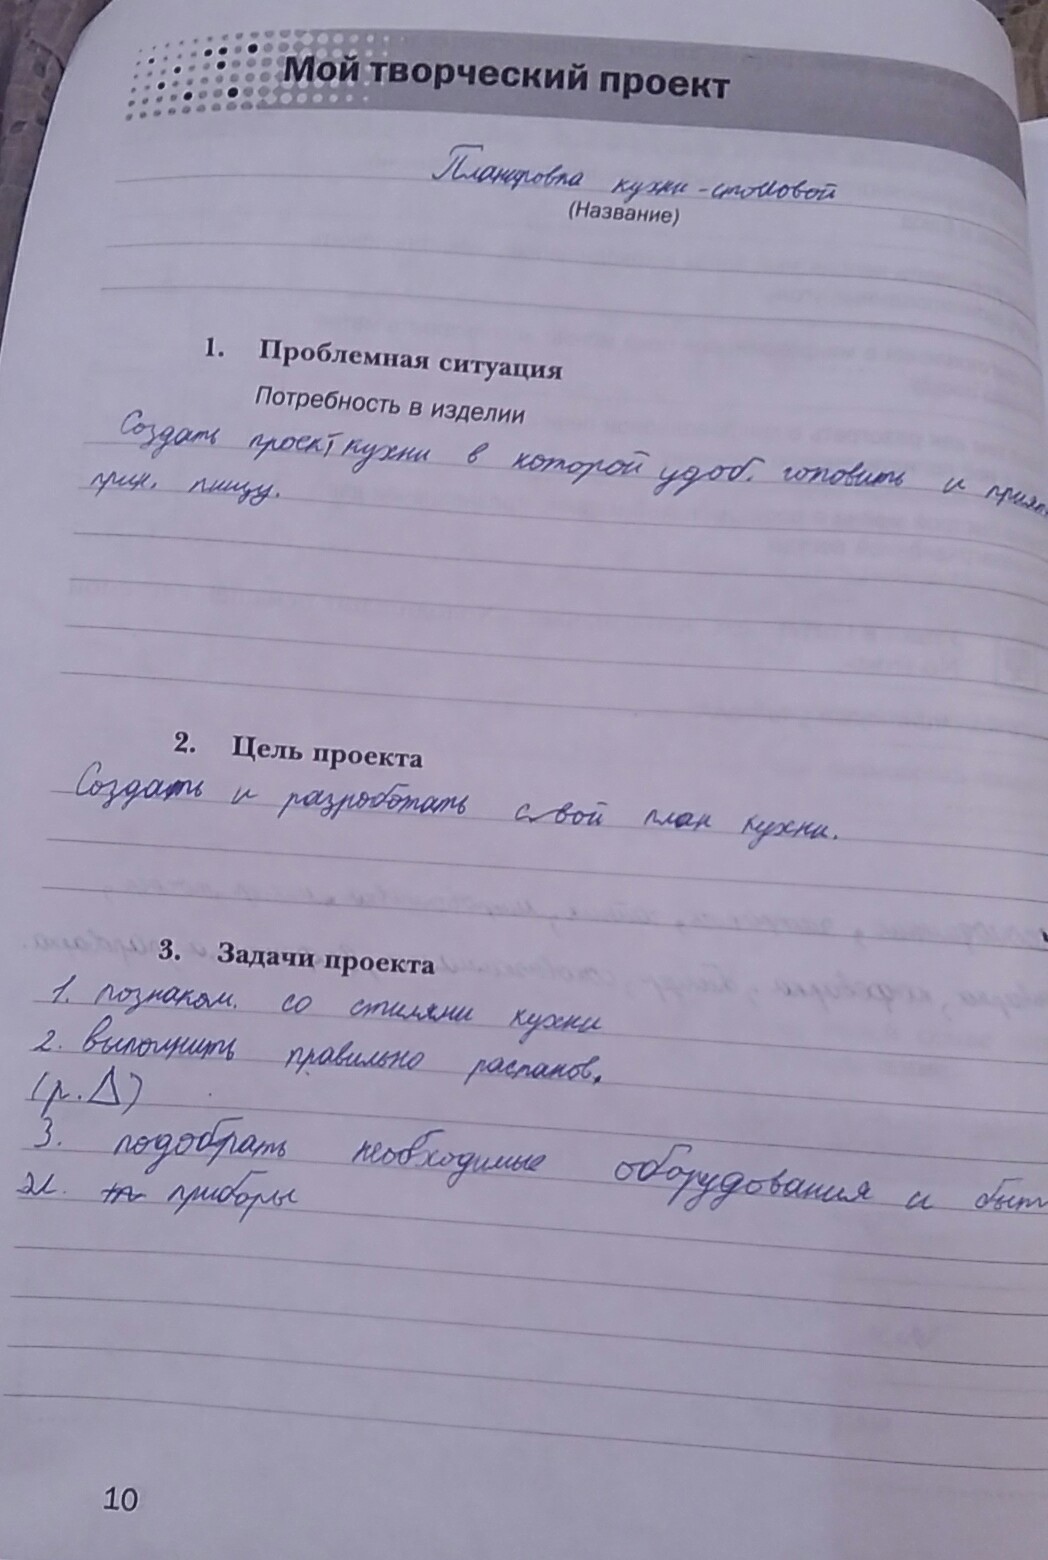 Мой творческий проект
Планировка кухни-столовой
(Название)
1. Проблемная ситуация
Потребность в изделии
Создать проект кухни в которой удоб. готовить и
прин. пищу.
2. Цель проекта
Создать и разроботать свой план кухни.
3. Задачи проекта
1. познаком. со стилями кухни
2. выполнить правильно распанов.
(р.Δ)
3. подобрать необходимые оборудования и быт
приборы
10